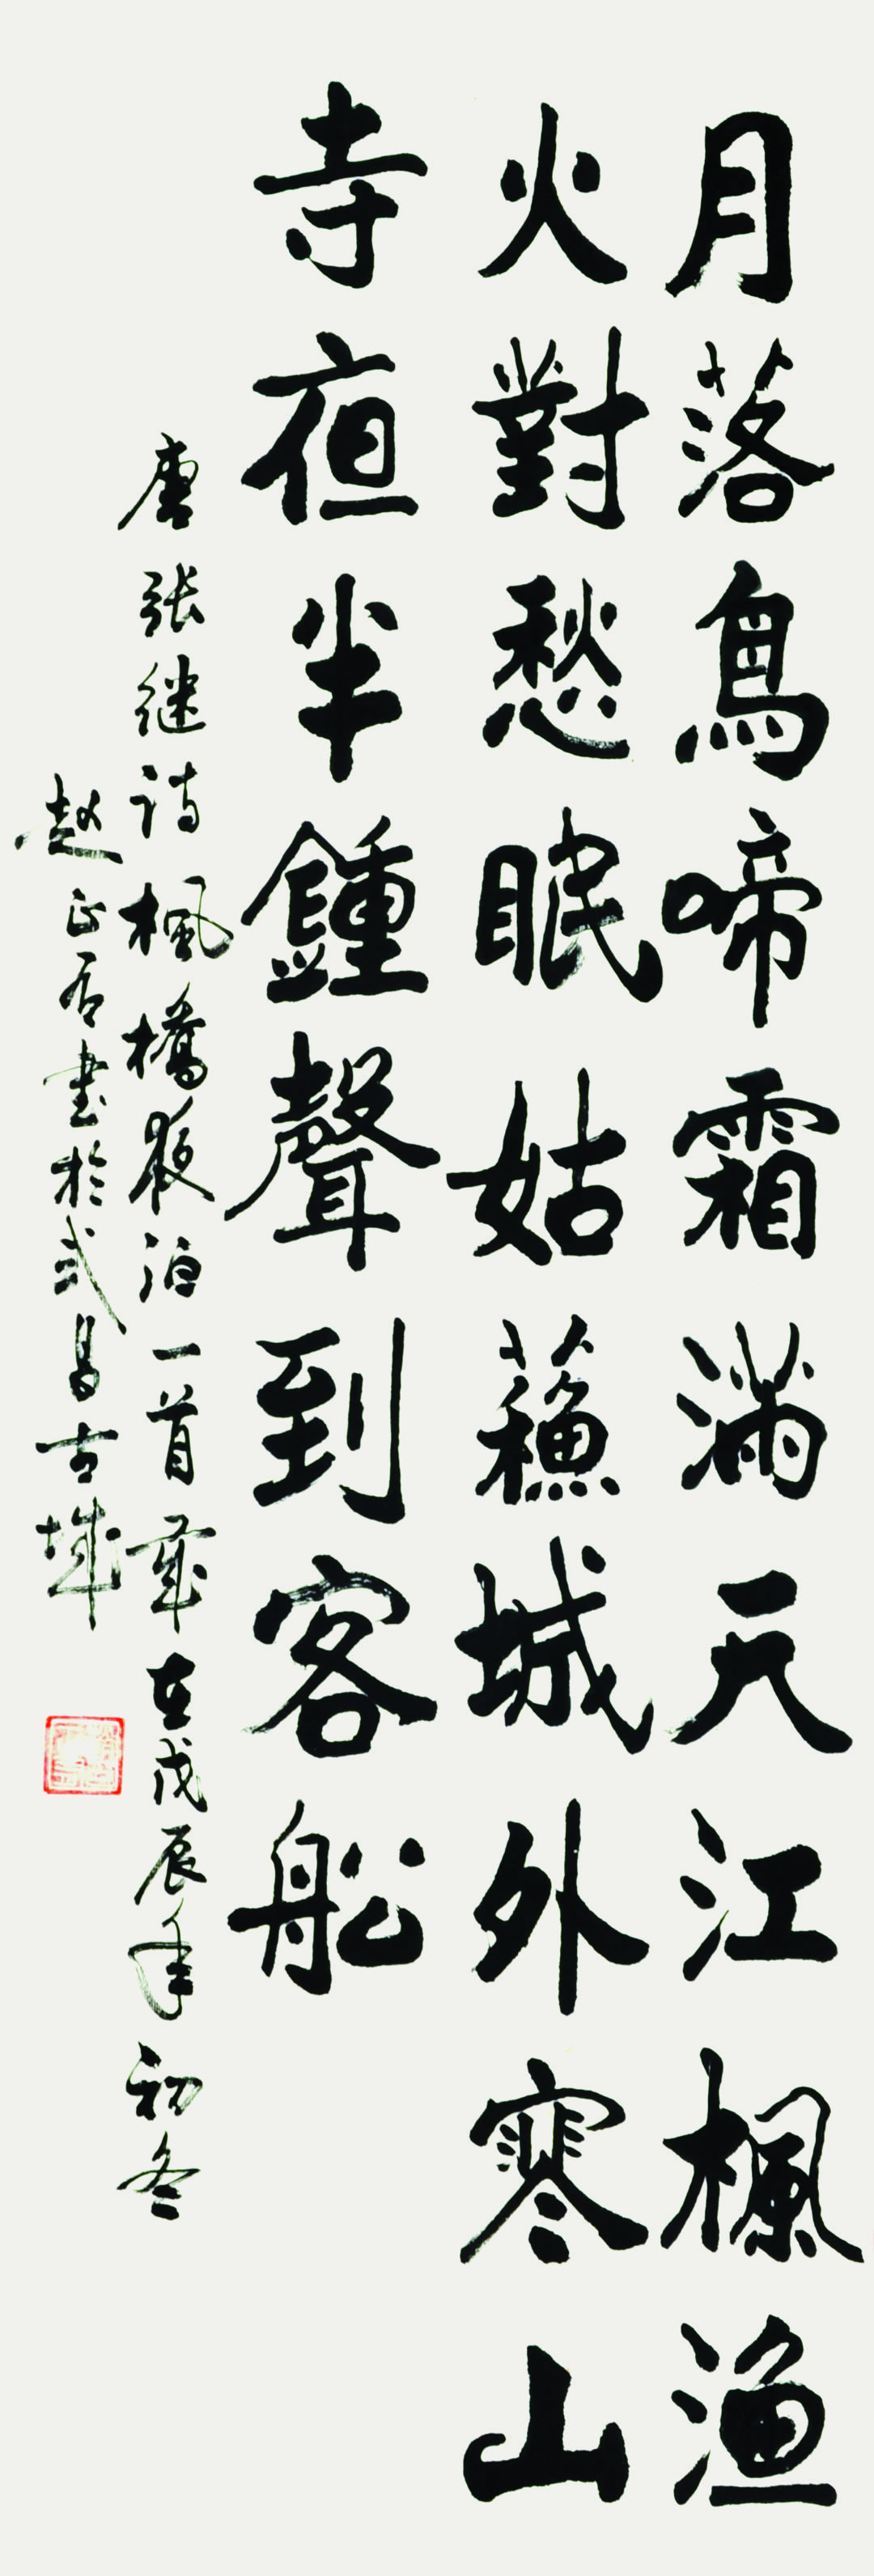 月落烏啼霜滿天江楓漁
火對愁眠姑蘓城外寒山
寺夜半鍾聲到客船
唐張继诗楓橋夜泊一首歲在戊辰年初冬
赵正书於武昌古城